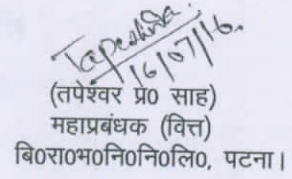 Tapeshwar
16/07/16.
(तपेश्वर प्र० साह)
महाप्रबंधक (वित्त)
बि०रा०भ०नि०नि०लि०, पटना।